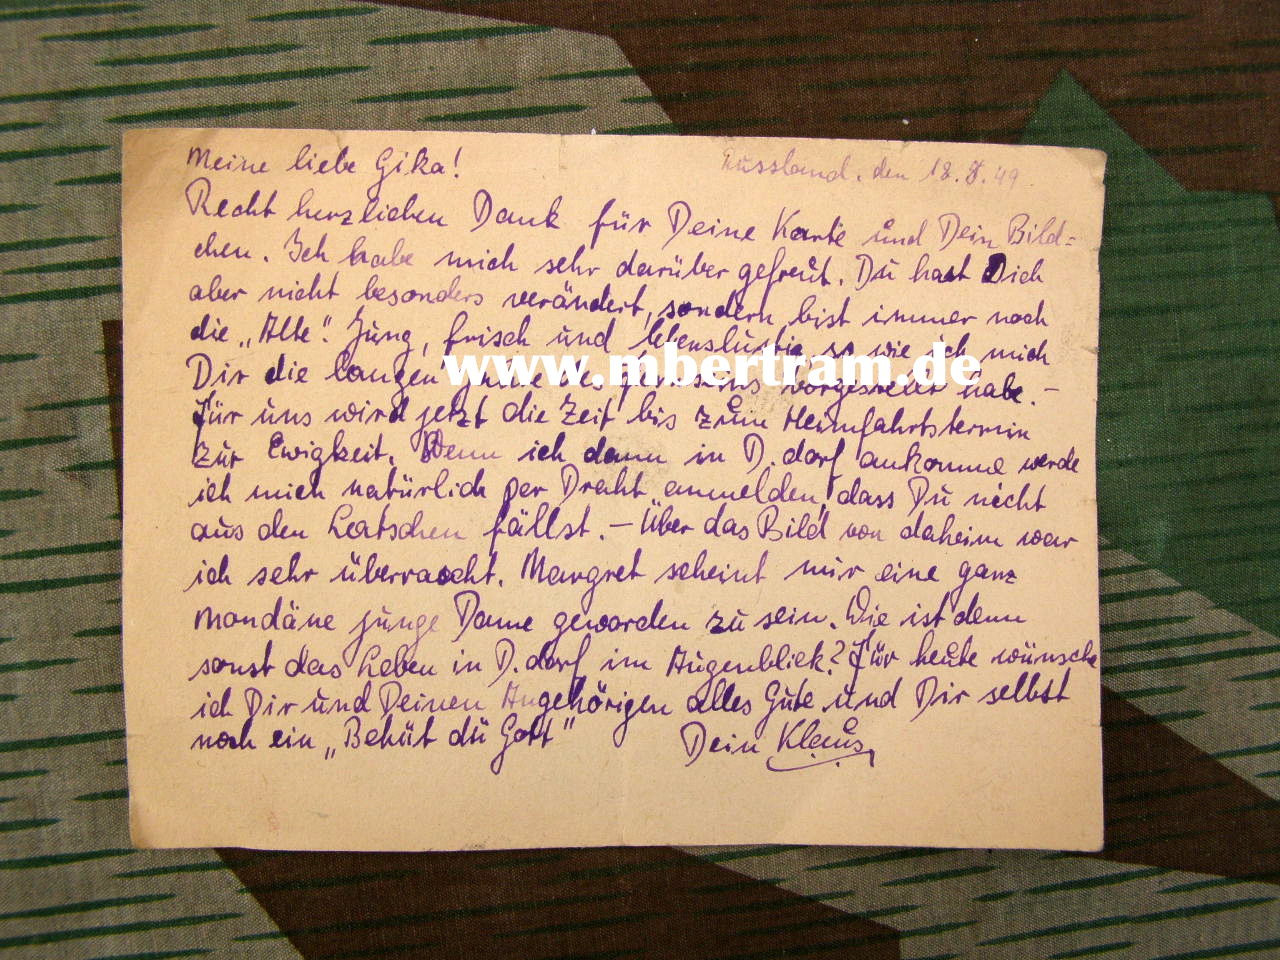 Meine liebe Gika! Russland, den 18.8.49
Recht herzlichen Dank für Deine Karte und Dein Bild=
chen. Ich habe mich sehr darüber gefreut. Du hast Dich
aber nicht besonders verändert, sondern bist immer noch
die „Alte". Jung, frisch und lebenslustig so wie ich mich
Dir die langen Jahre des vorgestellt habe. –
Für uns wird jetzt die Zeit bis zum Heimfahrtstermin
zur Ewigkeit. Wenn ich dann in D.dorf ankomme werde
ich mich natürlich per Draht anmelden, dass Du nicht
aus den Latschen fällst. – Über das Bild von daheim war
ich sehr überrascht. Margret scheint mir eine ganz
mondäne junge Dame geworden zu sein. Wie ist denn
sonst das Leben in D.dorf im Augenblick? Für heute wünsche
ich Dir und Deinen Angehörigen alles Gute und Dir selbst
noch ein „Behüt dü Gott" Dein Klaus
www.mbertram.de